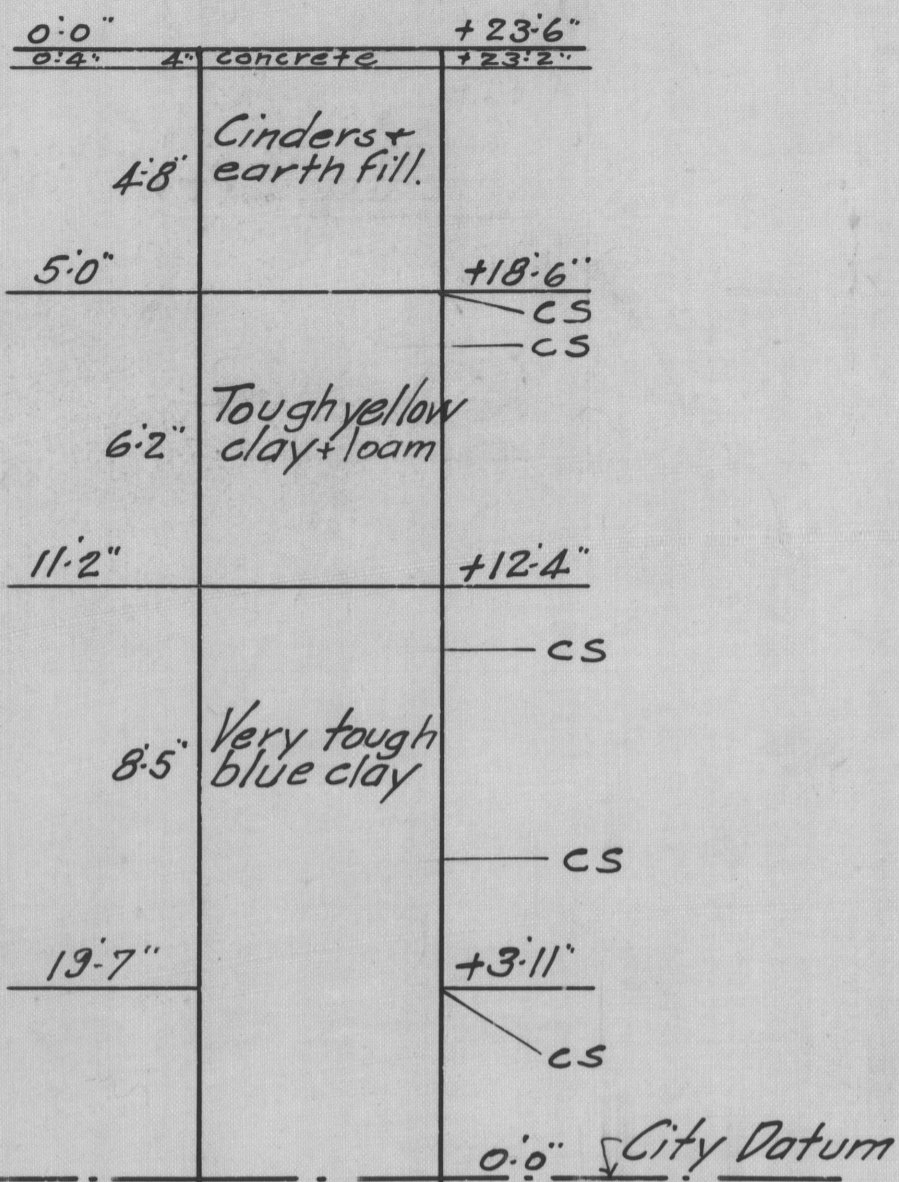 0'-0" +23'-6"
0'-4" 4" concrete +23'-2"
Cinders +
4'-8" earth fill.
5'-0" +18'-6"
CS
CS
Tough yellow
6'-2" clay + loam
11'-2" +12'-4"
CS
Very tough
8'-5" blue clay
CS
19'-7" +3'-11"
CS
0'-0" City Datum